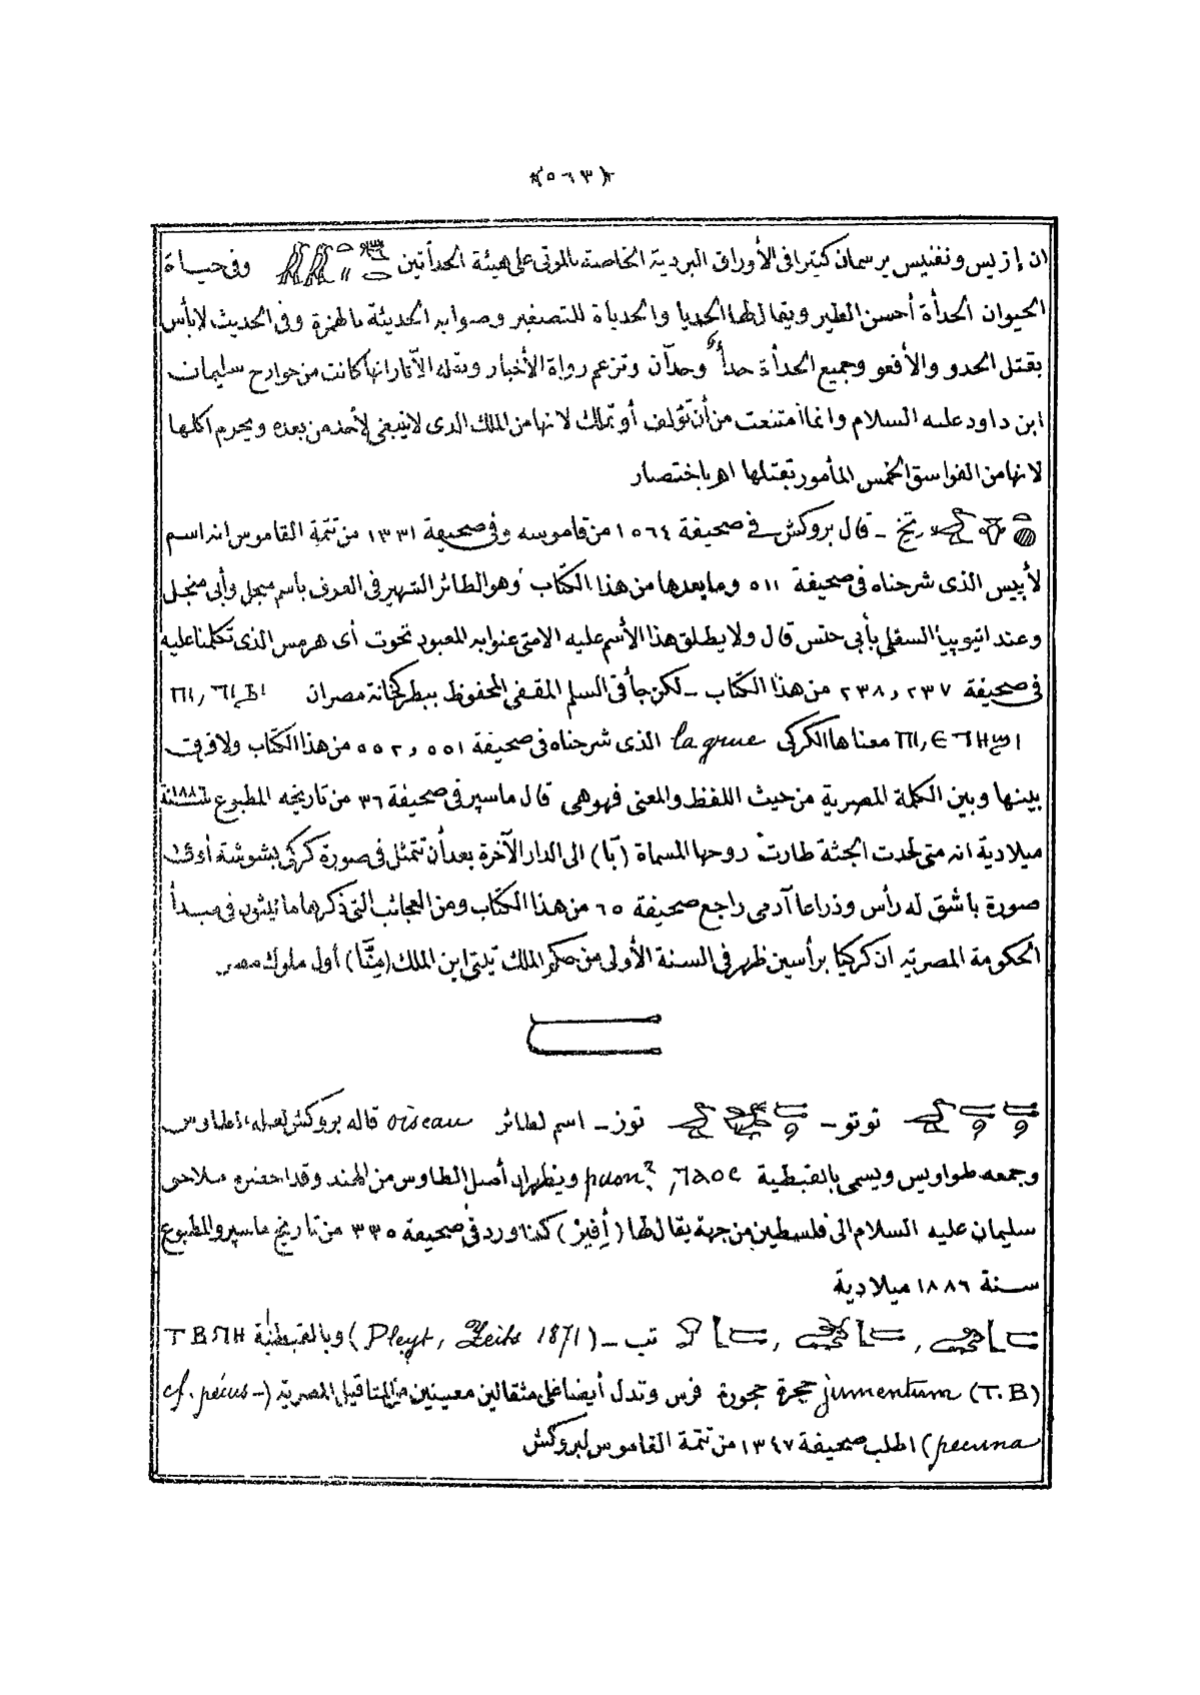 ﴿٥٦٣﴾
ان إزيس ونفتيس يرسمان كثيرا فى الأوراق البردية الخاصة بالموتى على هيئة الحدأتين وفى حياة
الحيوان الحدأة أحسن الطير ويقال لها الحديا والحدياة للتصغير وصوابه الحديئة بالهمزة وفى الحديث لابأس
بقتل الحدو والأفعو وجميع الحدأة حدأ وحدآن وتزعم رواة الأخبار ونقله الآثار انها كانت من جوارح سليمان
ابن داود عليه السلام وانما امتنعت من أن تؤلف أو تملك لانها من الملك الذى لاينبغى لأحد من بعده ويحرم اكلها
لانها من الفواسق الخمس المأمور بقتلها اهـ باختصار
تخ ـ قال بروكش فى صحيفة ١٥٦٤ من قاموسه وفى صحيفة ١٣٣١ من تتمة القاموس انه اسم
لأبيس الذى شرحناه فى صحيفة ٥١١ وما بعدها من هذا الكتاب وهو الطائر الشهير فى العرف بأسم منجل وأبى منجل
وعند اتيوبيا السفلى بأبى حنس قال ولا يطلق هذا الأسم عليه الا متى عنوا به المعبود تحوت أى هرمس الذى تكلمنا عليه
فى صحيفة ٢٣٧ , ٢٣٨ من هذا الكتاب ـ لكن جأ فى السلم المقفى المحفوظ ببطركخانة مصر ان
معناها الكركى la grue الذى شرحناه فى صحيفة ٥٥١ , ٥٥٢ من هذا الكتاب ولا فرق
بينها وبين الكلمة المصرية من حيث اللفظ والمعنى فهو هى قال ماسپرو فى صحيفة ٣٦ من تاريخه المطبوع سنة ١٨٨٦
ميلادية انه متى لحدت الجثة طارت روحها المسماة (بَا) الى الدار الآخرة بعد أن تتمثل فى صورة كركى بشوشة أو فى
صورة باشق له رأس وذراعا آدمى راجع صحيفة ٦٥ من هذا الكتاب ومن العجائب التى ذكرها مانيثون فى مبدأ
الحكومة المصرية ان كركيا برأسين ظهر فى السنة الأولى من حكم الملك تيتى ابن الملك (مِنَّا) أول ملوك مصر
توتو ـ توز ـ اسم لطائر oiseau قاله بروكش لعله الطاوس
وجمعه طواويس ويسمى بالقبطية ويظهر ان أصل الطاوس من الهند وقد احضره ملاحى
سليمان عليه السلام الى فلسطين من جهة يقال لها (أفير) كذا ورد فى صحيفة ٣٣٥ من تاريخ ماسپرو المطبوع
سنة ١٨٨٦ ميلادية
تب ـ (Pleyt, Zeits 1871) وبالقبطية ⲦⲂⲚⲎ
(T.B) jumentum حجرة حجورة فرس وتدل أيضا على مثقالين معينين من المثاقيل المصرية (- cf. pécus
pecuna) اطلب صحيفة ١٣٤٧ من تتمة القاموس لبروكش